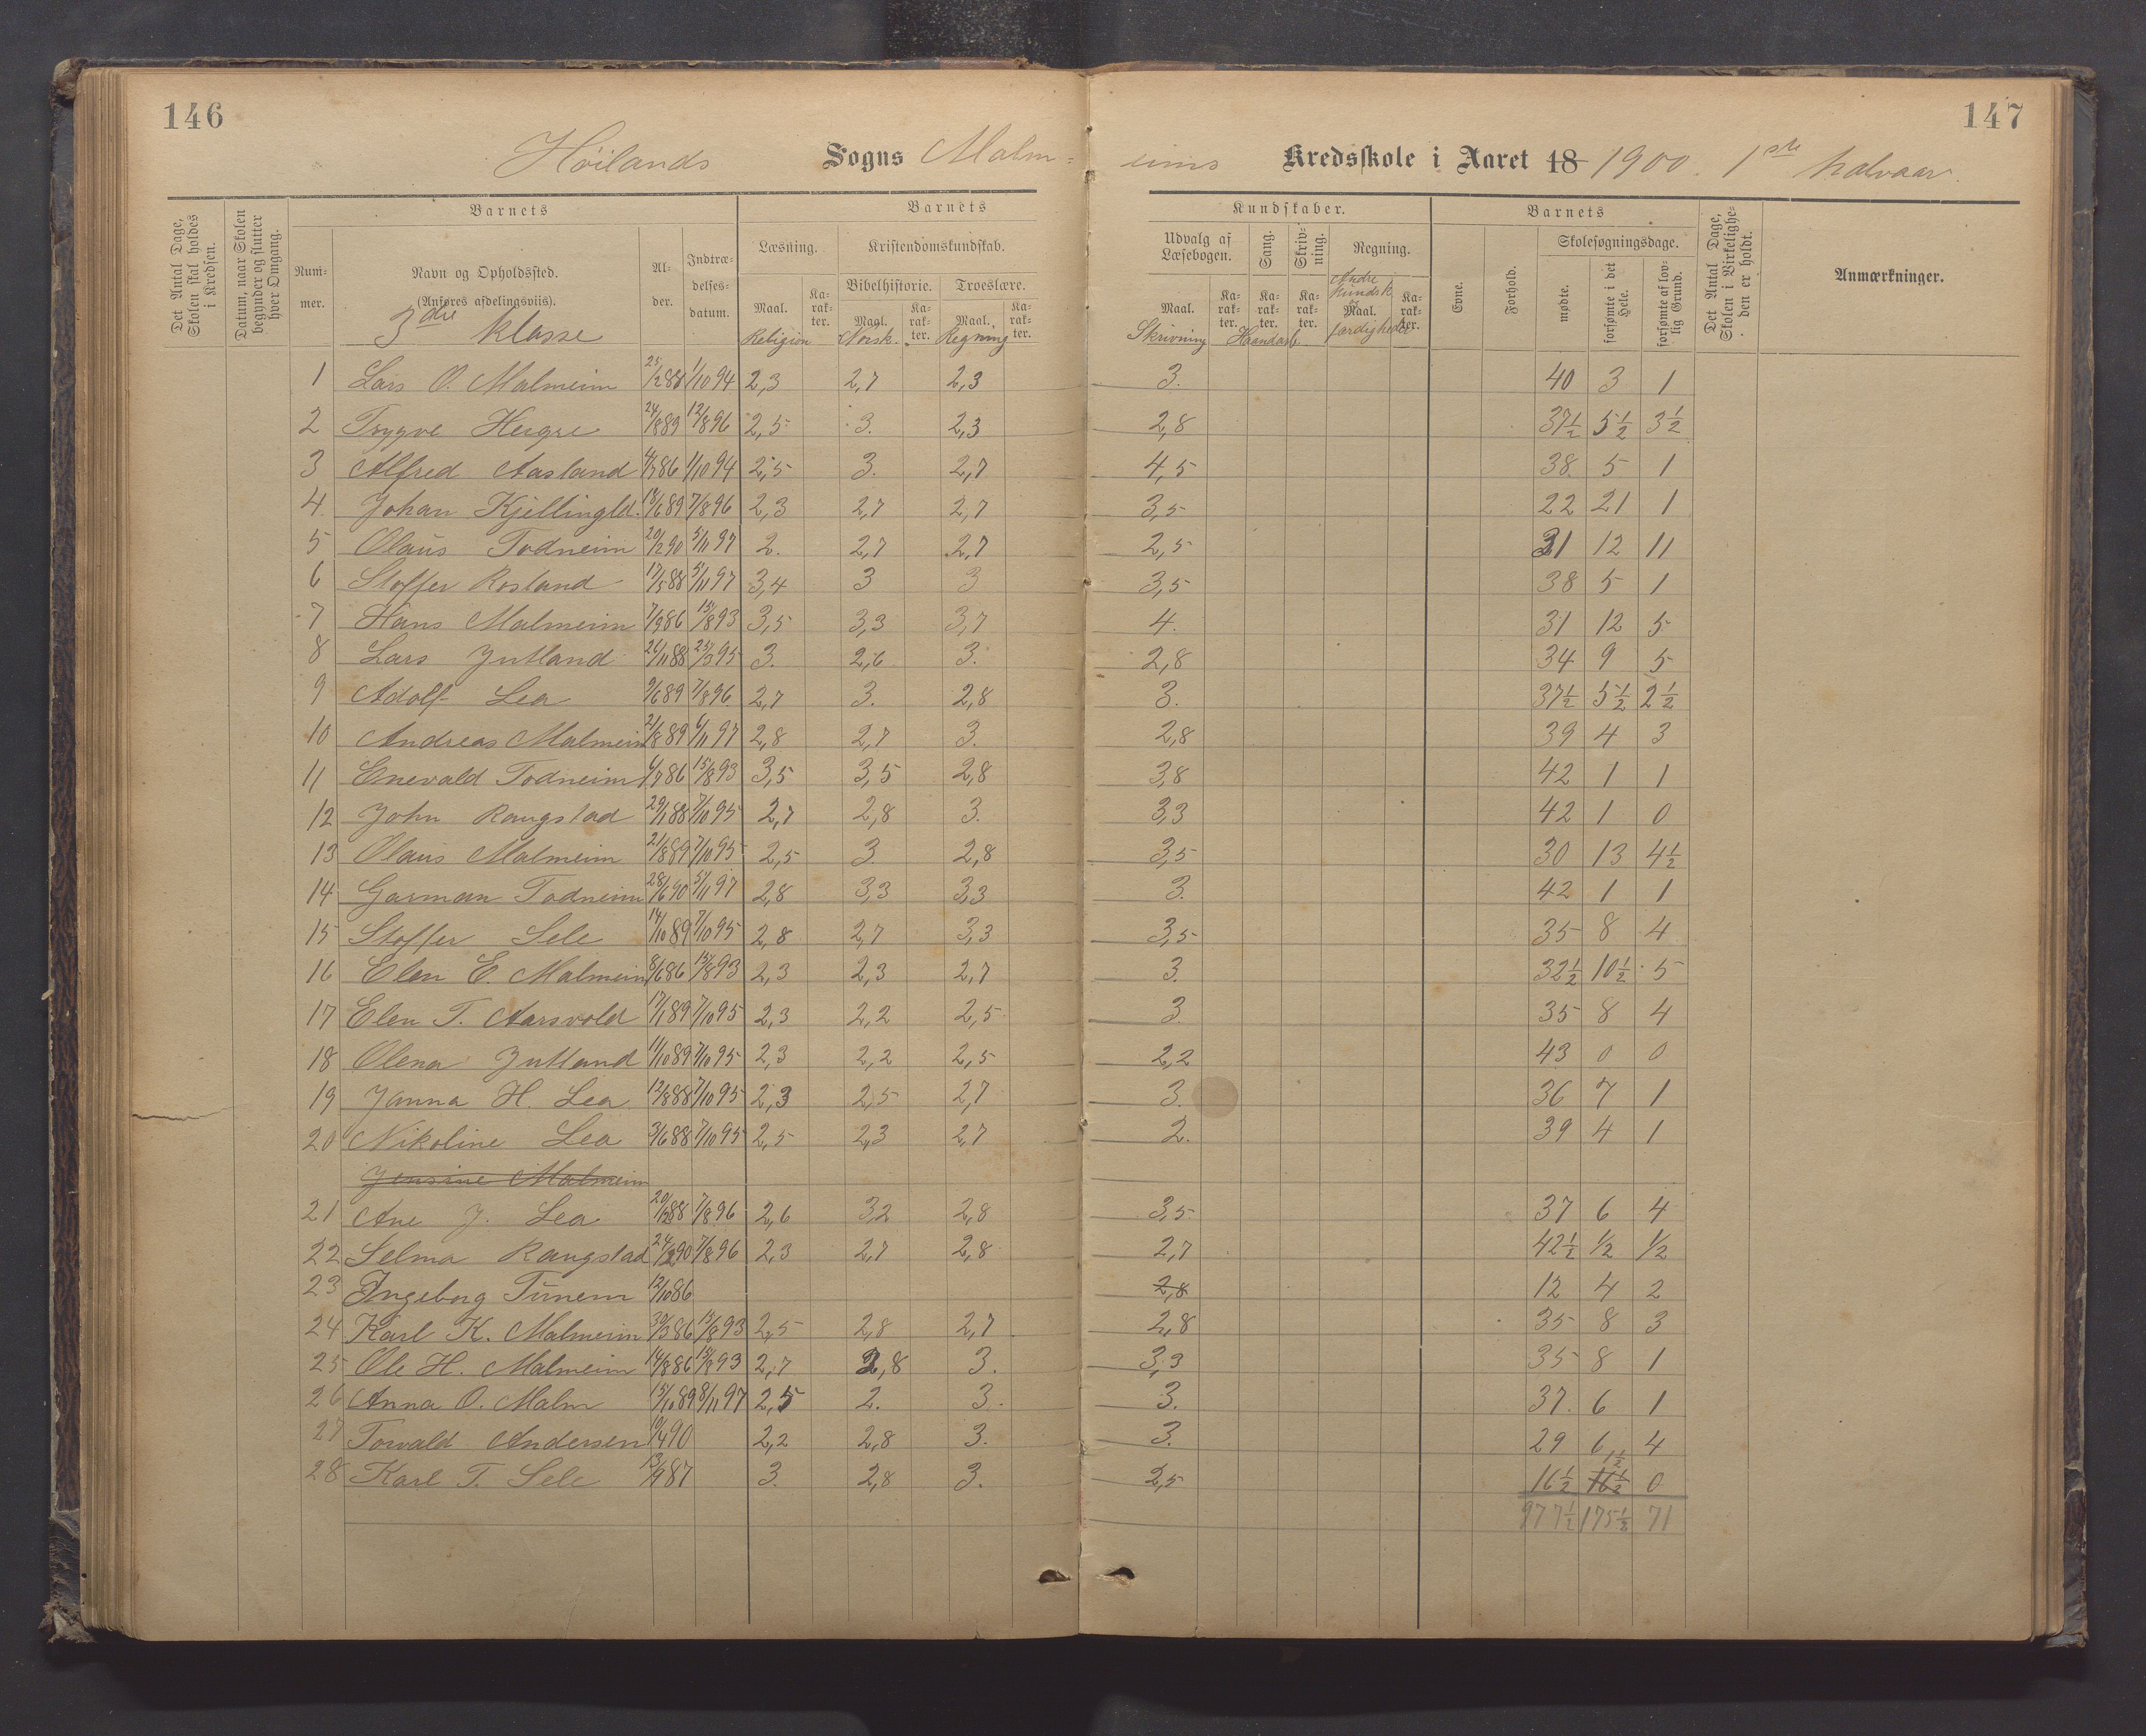 146
147
Höilands Sogns Malm= eims Kredsskole i Aaret 18 1900. 1ste halvaar.
Det Antal Dage, Skolen skal holdes i Kredsen.
Datum, naar Skolen begynder og slutter hver Omgang.
Barnets
Barnets
Kundskaber.
Barnets
Det Antal Dage, Skolen i Virkelighe- den er holdt.
Anmærkninger.
Num- mer.
Navn og Opholdssted.
(Anføres afdelingsviis).
3die klasse
Al- der.
Indtræ- delses- datum.
Læsning.
Kristendomskundskab.
Udvalg af Læsebogen.
Sang.
Skriv- ning.
Regning.
Evne.
Forhold.
Skolesøgningsdage.
Bibelhistorie.
Troeslære.
mødte.
forsømte i det Hele.
forsømte af lov- lig Grund.
Maal. Ka- rak- ter. Maal. Ka- rak- ter. Maal. Ka- rak- ter. Maal. Ka- rak- ter. Ka- rak- ter. Ka- rak- ter. Maal. Ka- rak- ter.
Religion Norsk. Regning Skrivning Haandarb. Andre Kundsk. og færdigheder
1 Lars O. Malmeim 25/2 88 1/10 94 2,3 2,7 2,3 3. 40 3 1
2 Trygve Hegre 24/8 89 12/8 96 2,5 3. 2,3 2,8 37½ 5½ 3½
3 Alfred Aasland 4/7 86 1/10 94 2,5 3. 2,7 4,5 38. 5 1
4. Johan Kjellingld. 18/6 89 7/8 96 2,3 2,7 2,7 3,5 22 21 1
5 Olaus Todneim 20/2 90 5/11 97 2. 2,7 2,7 2,5 31 12 11
6 Stoffer Rosland 17/5 88 5/11 97 3,4 3 3 3,5 38 5 1
7 Hans Malmeim 7/9 86 15/8 93 3,5 3,3 3,7 4. 31 12 5
8 Lars Jutland 26/11 88 25/3 95 3. 2,6 3. 2,8 34 9 5
9 Adolf Lea 9/6 89 7/8 96 2,7 3. 2,8 3. 37½ 5½ 2½
10 Andreas Malmeim 2/8 89 6/11 97 2,8 2,7 3. 2,8 39 4 3
11 Enevald Todneim 6/7 86 15/8 93 3,5 3,5 2,8 3,8 42 1 1
12 John Rangstad 29/1 88 7/10 95 2,7 2,8 3. 3,3 42 1 0
13 Olaus Malmeim 21/8 89 7/10 95 2,5 3. 2,8 3,5 30 13 4½
14 Garman Todneim 28/6 90 5/11 97 2,8 3,3 3,3 3. 42 1 1
15 Stoffer Sele 14/10 89 7/10 95 2,8 2,7 3,3 3,5 35 8 4
16 Elen E. Malmeim 8/6 86 15/8 93 2,3 2,3 2,7 3. 32½ 10½ 5
17 Elen T. Aarsvold 17/1 89 7/10 95 2,3 2,2 2,5 3 35 8 4
18 Olena Jutland 11/10 89 7/10 95 2,3 2,2 2,5 2,2 43 0 0
19 Janna H. Lea 12/8 88 7/10 95 2,3 2,5 2,7 3. 36 7 1
20 Nikoline Lea 3/6 88 7/10 95 2,5 2,3 2,7 2. 39 4 1
Jensine Malmeim
21 Ane J. Lea 20/12 88 7/8 96 2,6 3,2 2,8 3,5 37 6 4
22 Selma Rangstad 24/2 90 7/8 96 2,3 2,7 2,8 2,7 42½ ½ ½
23 Ingeborg Tunem 12/10 86 2,8 12 4 2
24 Karl K. Malmeim 30/3 86 15/8 93 2,5 2,8 2,7 2,8 35 8 3
25 Ole H. Malmeim 14/8 86 15/8 93 2,7 2,8 3. 3,3 35 8 1
26 Anna O. Malm 15/10 89 8/11 97 2,5 2. 3. 3. 37. 6 1
27 Torvald Andersen 10/4 90 2,2 2,8 3. 3. 29 6 4
28 Karl T. Sele 13/9 87 3. 2,8 3. 2,5 16½ 16½ 1½ 0
977½ 175½ 71